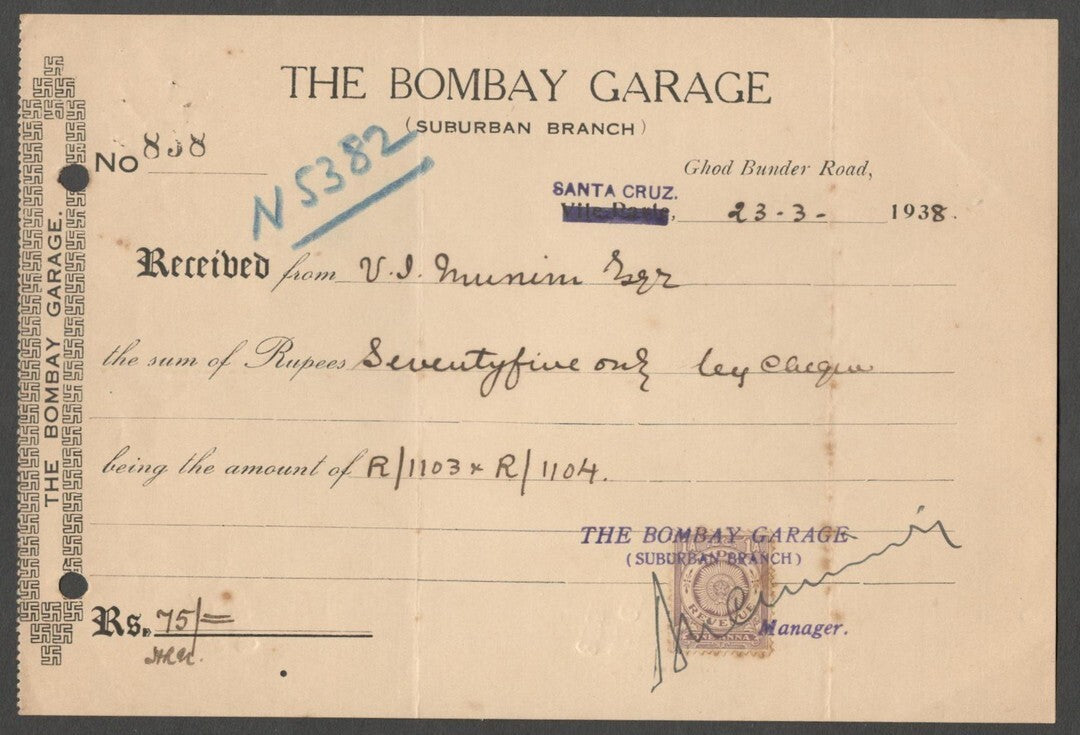 THE BOMBAY GARAGE
(SUBURBAN BRANCH)
No 838
N 5382
Ghod Bunder Road,
SANTA CRUZ.
Vile Parle, 23-3- 1938.
Received from V. I. Munim Esqr
the sum of Rupees Seventyfive only by cheque
being the amount of R/1103 & R/1104.
THE BOMBAY GARAGE
(SUBURBAN BRANCH)
REVENUE
ONE ANNA
Manager.
Rs. 75/=
THE BOMBAY GARAGE.